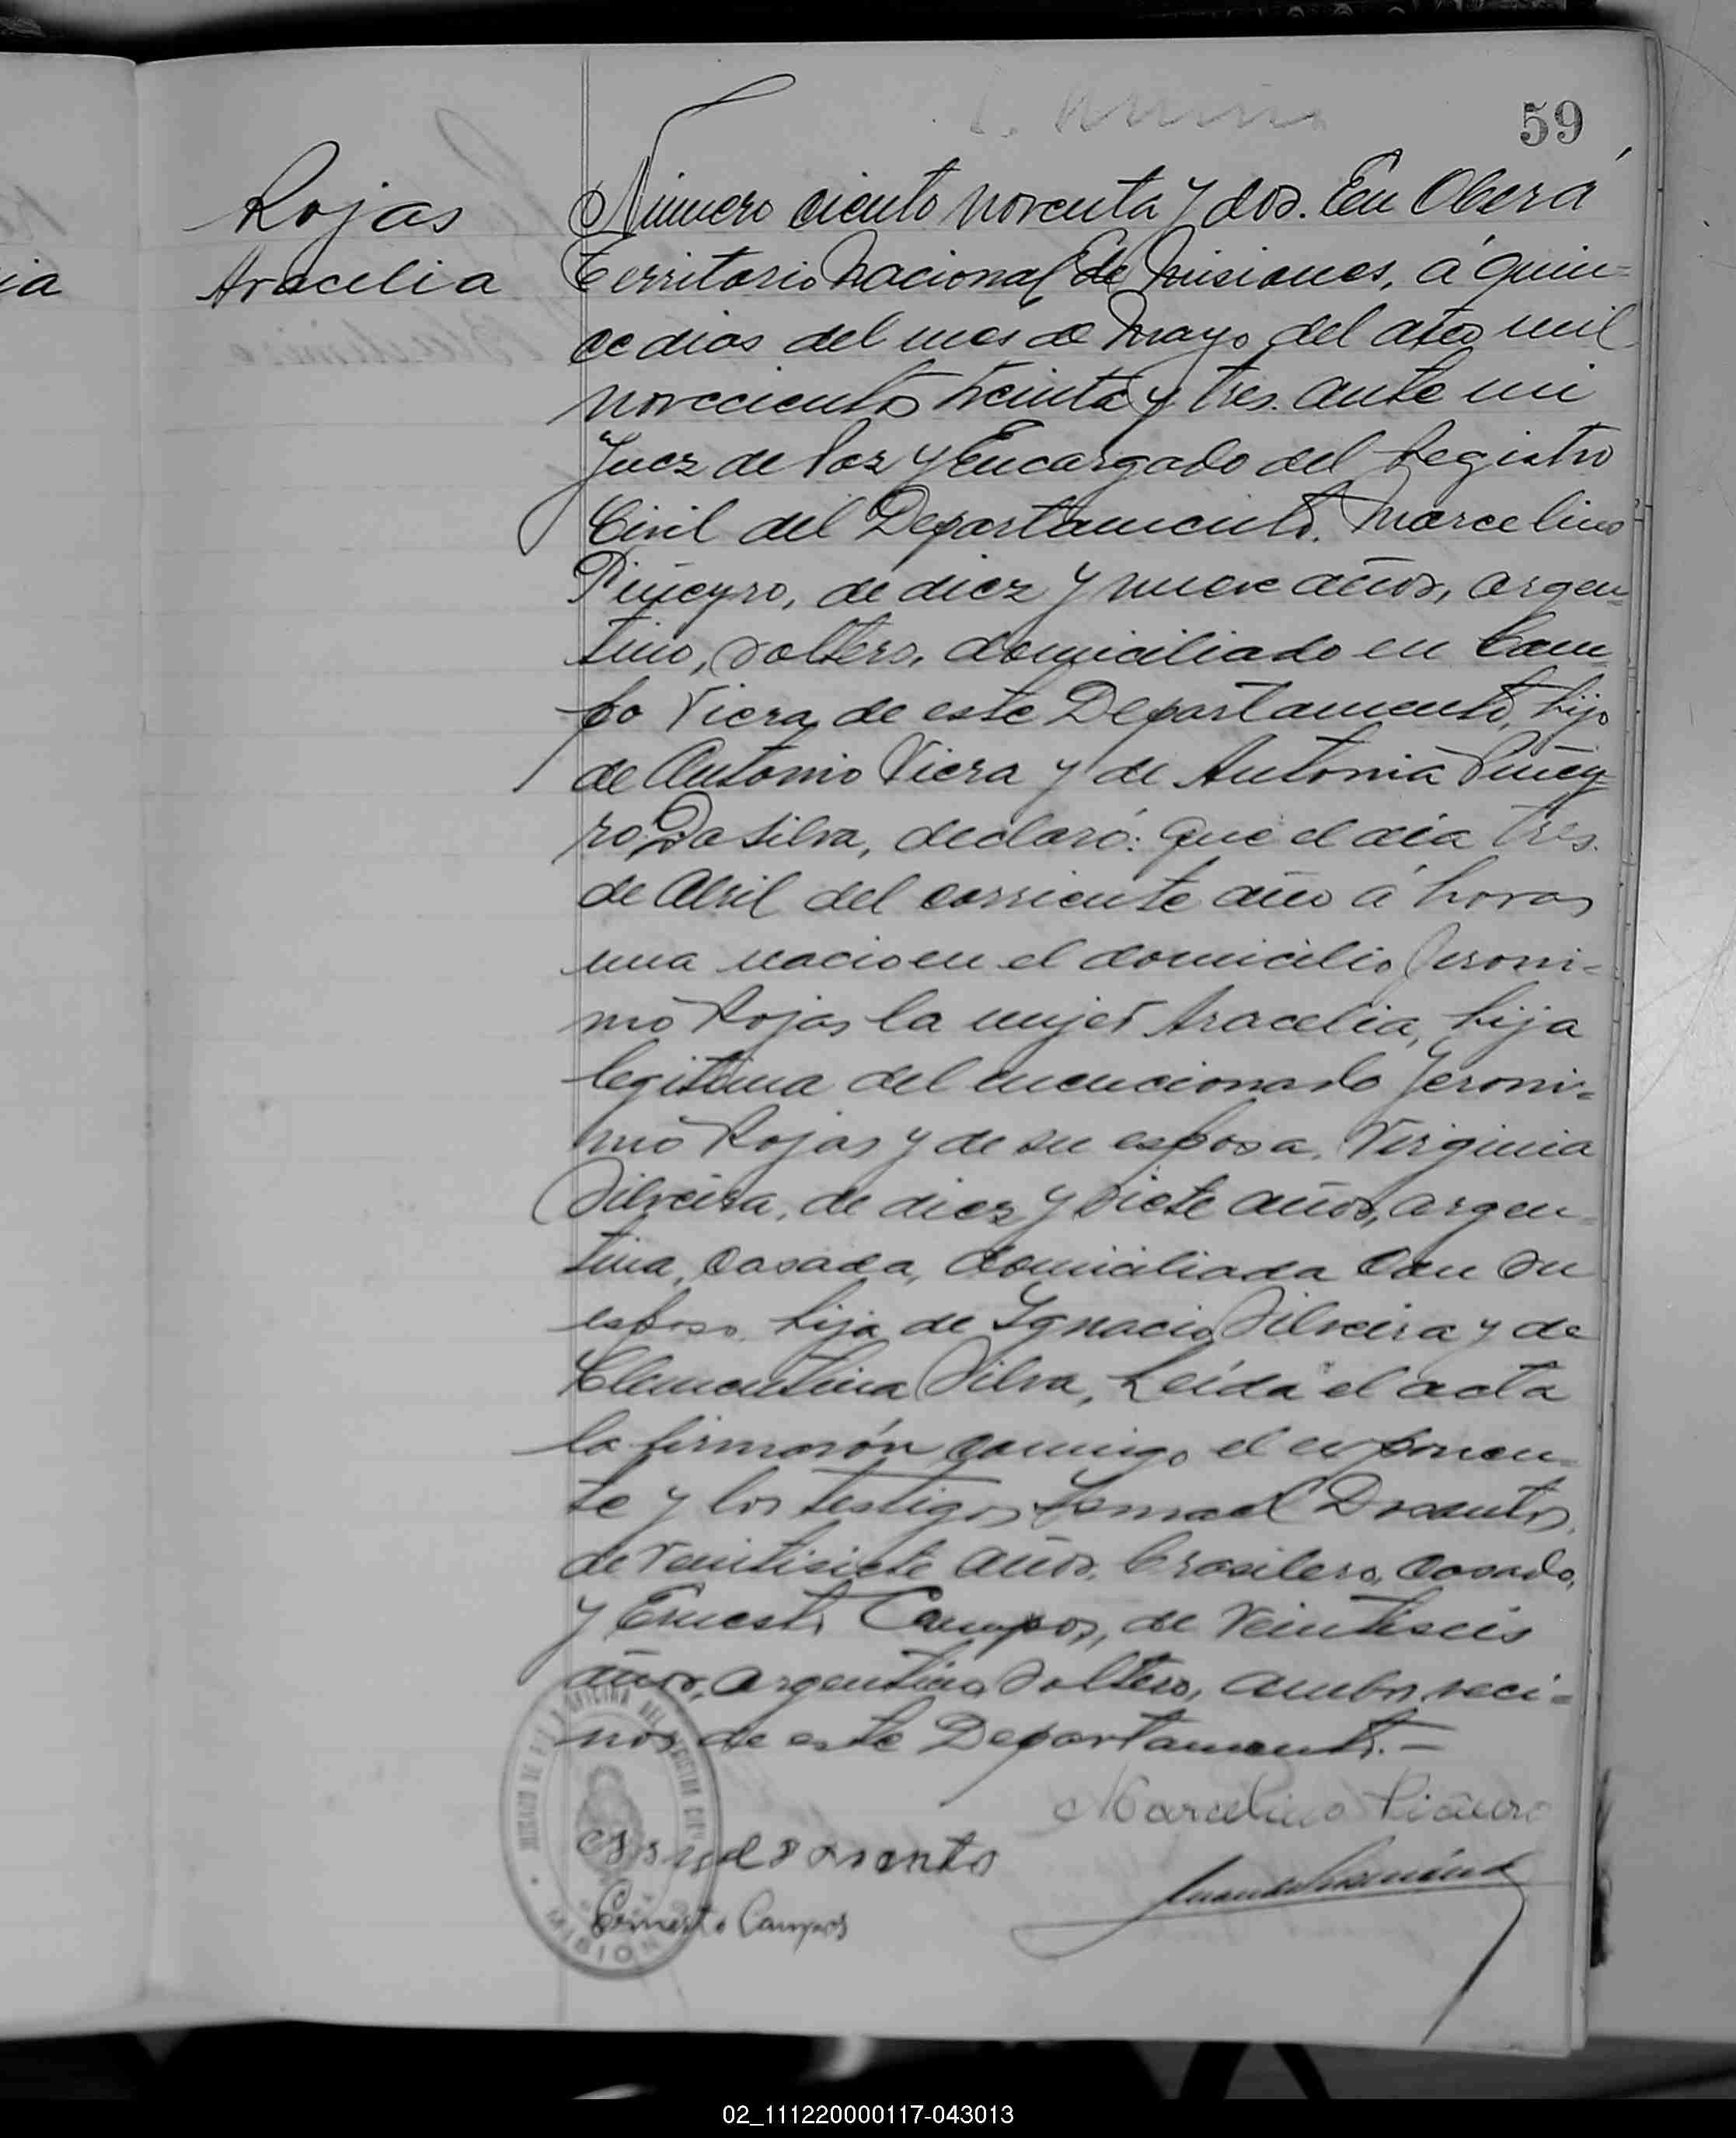 59
Rojas
Aracelia
ia
Número ciento noventa y dos. En Oberá
Territorio Nacional de Misiones, á quin=
ce dias del mes de Mayo del año mil
novecientos treinta y tres. ante mi
Juez de Paz y Encargado del Registro
Civil del Departamento. Marcelino
Piñeyro, de diez y nueve años, argen=
tino, soltero, domiciliado en Cam=
po Viera, de este Departamento, hijo
de Antonio Viera y de Antonia Piñey=
ro Da Silva, declaró: Que el dia tres
de Abril del corriente año á horas
una nacio en el domicilio Jeroni=
mo Rojas la mujer Aracelia, hija
legitima del mencionado Jeroni=
mo Rojas y de su esposa, Virginia
Silveira, de diez y siete años, argen=
tina, casada, domiciliada con su
esposo, hija de Ignacio Silveira y de
Clementina Silva, Leída el acta
la firmarón conmigo el exponen=
te y los testigos Ismael
de veintisiete años, brasilero, casado,
y Ernesto Campos, de veintiseis
años, argentino, soltero, ambos veci=
nos de este Departamento.—
Marcelino Piñeiro
Ernesto Campos
OFICINA DEL REGISTRO CIVIL
MISIONES
02_111220000117-043013